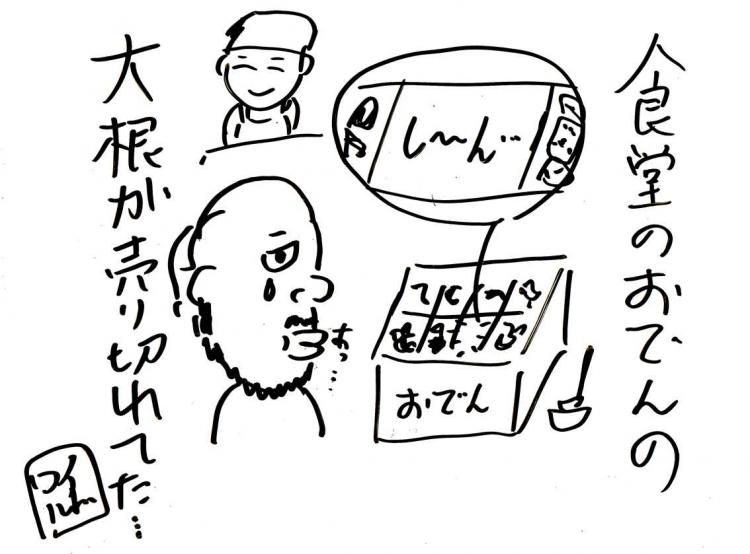 食堂のおでんの
し〜ん…
おでん
あっ…
大根が売り切れてた…
ワイルド